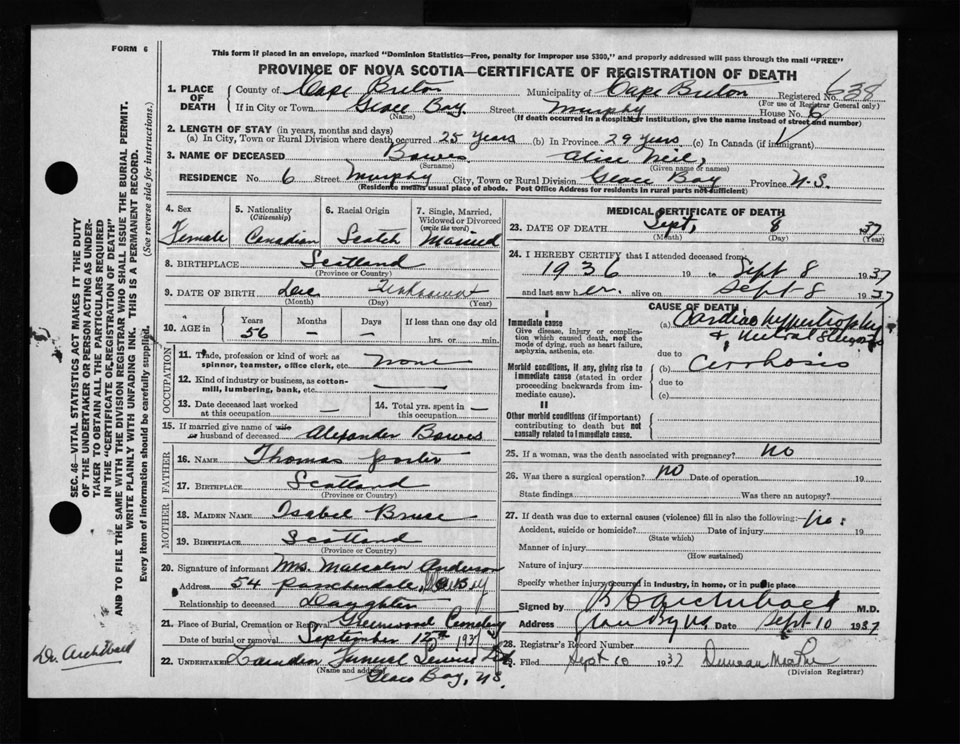 FORM 6
This form if placed in an envelope, marked "Dominion Statistics—Free, penalty for improper use $300," and properly addressed will pass through the mail "FREE"
PROVINCE OF NOVA SCOTIA—CERTIFICATE OF REGISTRATION OF DEATH
1. PLACE OF DEATH County of Cape Breton Municipality of Cape Breton Registered No. 638
(For use of Registrar General only)
If in City or Town Glace Bay Street Murphy House No. 6
(Name) (If death occurred in a hospital or institution, give the name instead of street and number)
2. LENGTH OF STAY (in years, months and days)
(a) In City, Town or Rural Division where death occurred 25 years (b) In Province 29 years (c) In Canada (if immigrant)
3. NAME OF DECEASED Bowes Alise Neil,
(Surname) (Given name or names)
RESIDENCE No. 6 Street Murphy City, Town or Rural Division Glace Bay Province N.S.
(Residence means usual place of abode. Post Office Address for residents in rural parts not sufficient)
4. Sex Female
5. Nationality (Citizenship) Canadian
6. Racial Origin Scotch
7. Single, Married, Widowed or Divorced (write the word) Married
8. BIRTHPLACE Scotland
(Province or Country)
9. DATE OF BIRTH Dec Unknown
(Month) (Day) (Year)
10. AGE in Years 56 Months — Days — If less than one day old hrs. or min.
OCCUPATION
11. Trade, profession or kind of work as spinner, teamster, office clerk, etc. none
12. Kind of industry or business, as cotton-mill, lumbering, bank, etc. —
13. Date deceased last worked at this occupation —
14. Total yrs. spent in this occupation —
15. If married give name of wife or husband of deceased Alexander Bowes
FATHER
16. NAME Thomas
17. BIRTHPLACE Scotland
(Province or Country)
MOTHER
18. MAIDEN NAME Isabel Bruce
19. BIRTHPLACE Scotland
(Province or Country)
20. Signature of informant Mrs. Malcolm Anderson
Address 54
Relationship to deceased Daughter
21. Place of Burial, Cremation or Removal Greenwood Cemetery
Date of burial or removal September 12th 1937
22. UNDERTAKER Funeral Service Ltd
(Name and address) Glace Bay, N.S.
MEDICAL CERTIFICATE OF DEATH
23. DATE OF DEATH Sept, 8 1937
(Month) (Day) (Year)
24. I HEREBY CERTIFY that I attended deceased from
1936 19 to Sept 8 1937
and last saw her alive on Sept 8 1937
CAUSE OF DEATH
I
Immediate cause
Give disease, injury, or complication which caused death, not the mode of dying, such as heart failure, asphyxia, asthenia, etc.
(a) Cardiac hypertrophy
& Mitral Stenosis
due to
Morbid conditions, if any, giving rise to immediate cause (stated in order proceeding backwards from immediate cause)
(b) Cirrhosis
due to
(c)
II
Other morbid conditions (if important) contributing to death but not causally related to immediate cause.
25. If a woman, was the death associated with pregnancy? no
26. Was there a surgical operation? no Date of operation 19
State findings Was there an autopsy?
27. If death was due to external causes (violence) fill in also the following:— no:
Accident, suicide or homicide? Date of injury 19
(State which)
Manner of injury
(How sustained)
Nature of injury
Specify whether injury occurred in industry, in home, or in public place
Signed by M.D.
Address Date Sept 10 1937
28. Registrar's Record Number
29. Filed Sept 10 1937 Duncan
(Division Registrar)
SEC. 46—VITAL STATISTICS ACT MAKES IT THE DUTY
OF THE UNDERTAKER OR PERSON ACTING AS UNDER-
TAKER TO OBTAIN ALL THE PARTICULARS REQUIRED
IN THE "CERTIFICATE OR REGISTRATION OF DEATH"
AND TO FILE THE SAME WITH THE DIVISION REGISTRAR WHO SHALL ISSUE THE BURIAL PERMIT.
WRITE PLAINLY WITH UNFADING INK. THIS IS A PERMANENT RECORD.
Every item of information should be carefully supplied. (See reverse side for instructions.)
Dr. Archibald